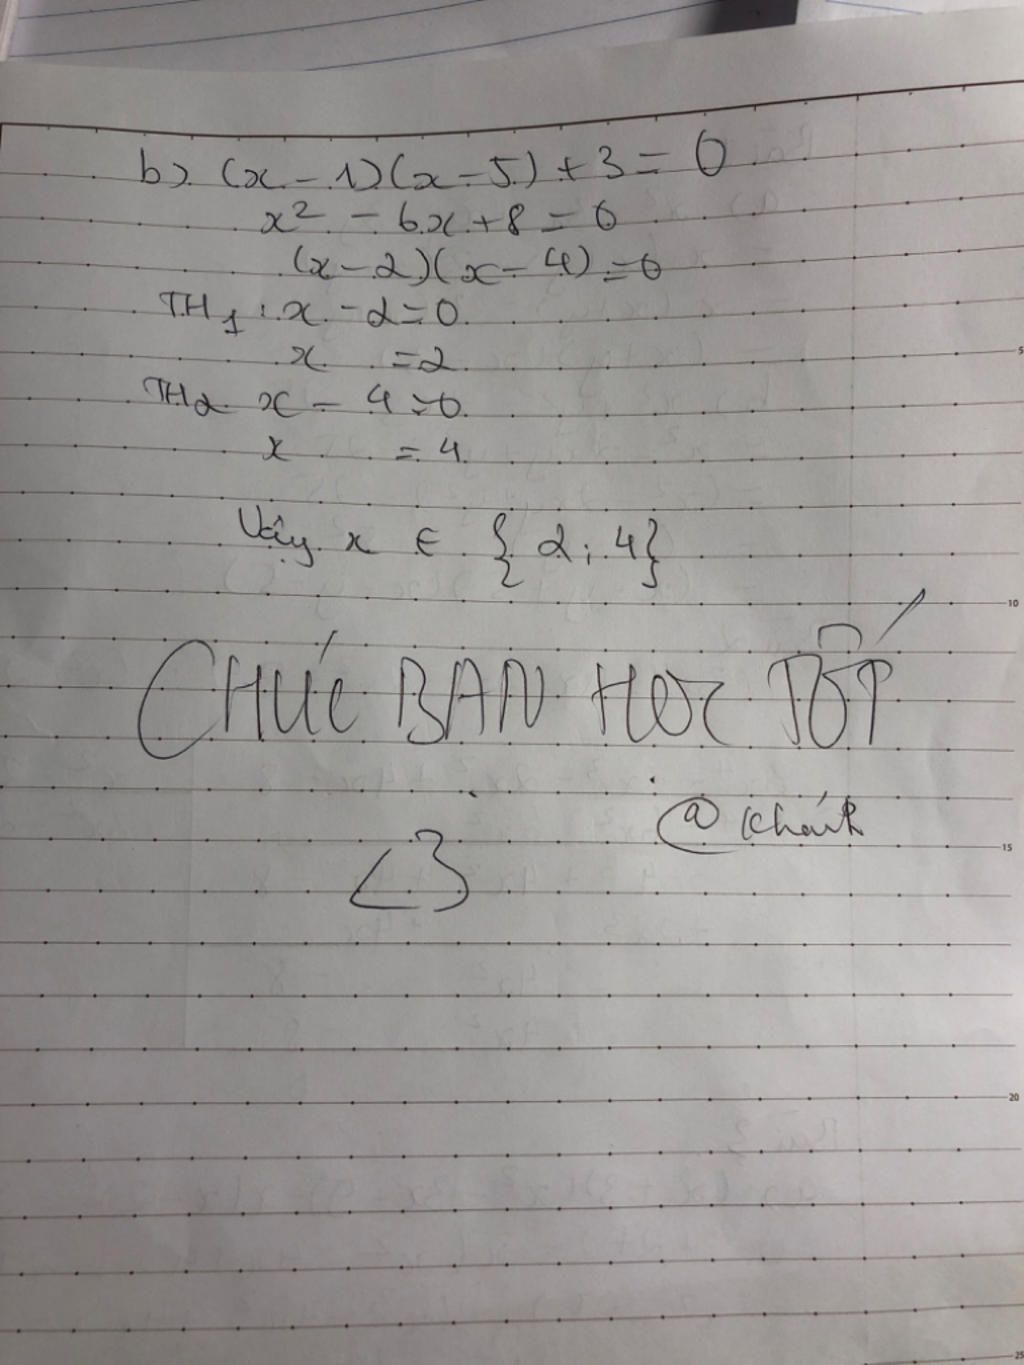 b) (x - 1)(x - 5) + 3 = 0
x² - 6x + 8 = 0
(x - 2)(x - 4) = 0
TH1 : x - 2 = 0
x = 2
TH2 x - 4 = 0
x = 4
Vậy x ∈ {2; 4}
CHÚC BẠN HỌC TỐT
@Khánh
<3
5
10
15
20
25